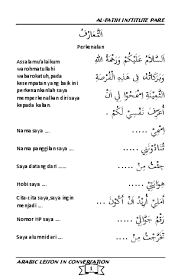 AL-FATIH INSTITUTE PARE
التَّعَارُفُ
Perkenalan
Assalamu'alaikum
warohmatullahi
wabarokatuh, pada
kesempatan yang baik ini
perkenankanlah saya
memperkenalkan diri saya
kepada kalian.
اَلسَّلَامُ عَلَيْكُمْ وَرَحْمَةُ اللهِ
وَبَرَكَاتُهُ، فِي هَذِهِ الْفُرْصَةِ
الثَّمِيْنَةِ اِسْمَحُوْا لِي أَنْ
أُعَرِّفَ نَفْسِيْ لَكُمْ .
Nama saya ... اِسْمِيْ .....
Nama panggilan saya ... تُنَادُوْنَنِي .....
Saya datang dari ..... جِئْتُ مِنْ .....
Hobi saya ... هِوَايَتِيْ .....
Cita-cita saya, saya ingin
menjadi ... أَمَلِيْ أُرِيْدُ أَنْ أَكُوْنَ ...
Nomor HP saya ... رَقْمُ جَوَّالِيْ .....
Saya alumni dari ... تَخَرَّجْتُ مِنْ .....
ARABIC LESSON IN CONSERVATION
1